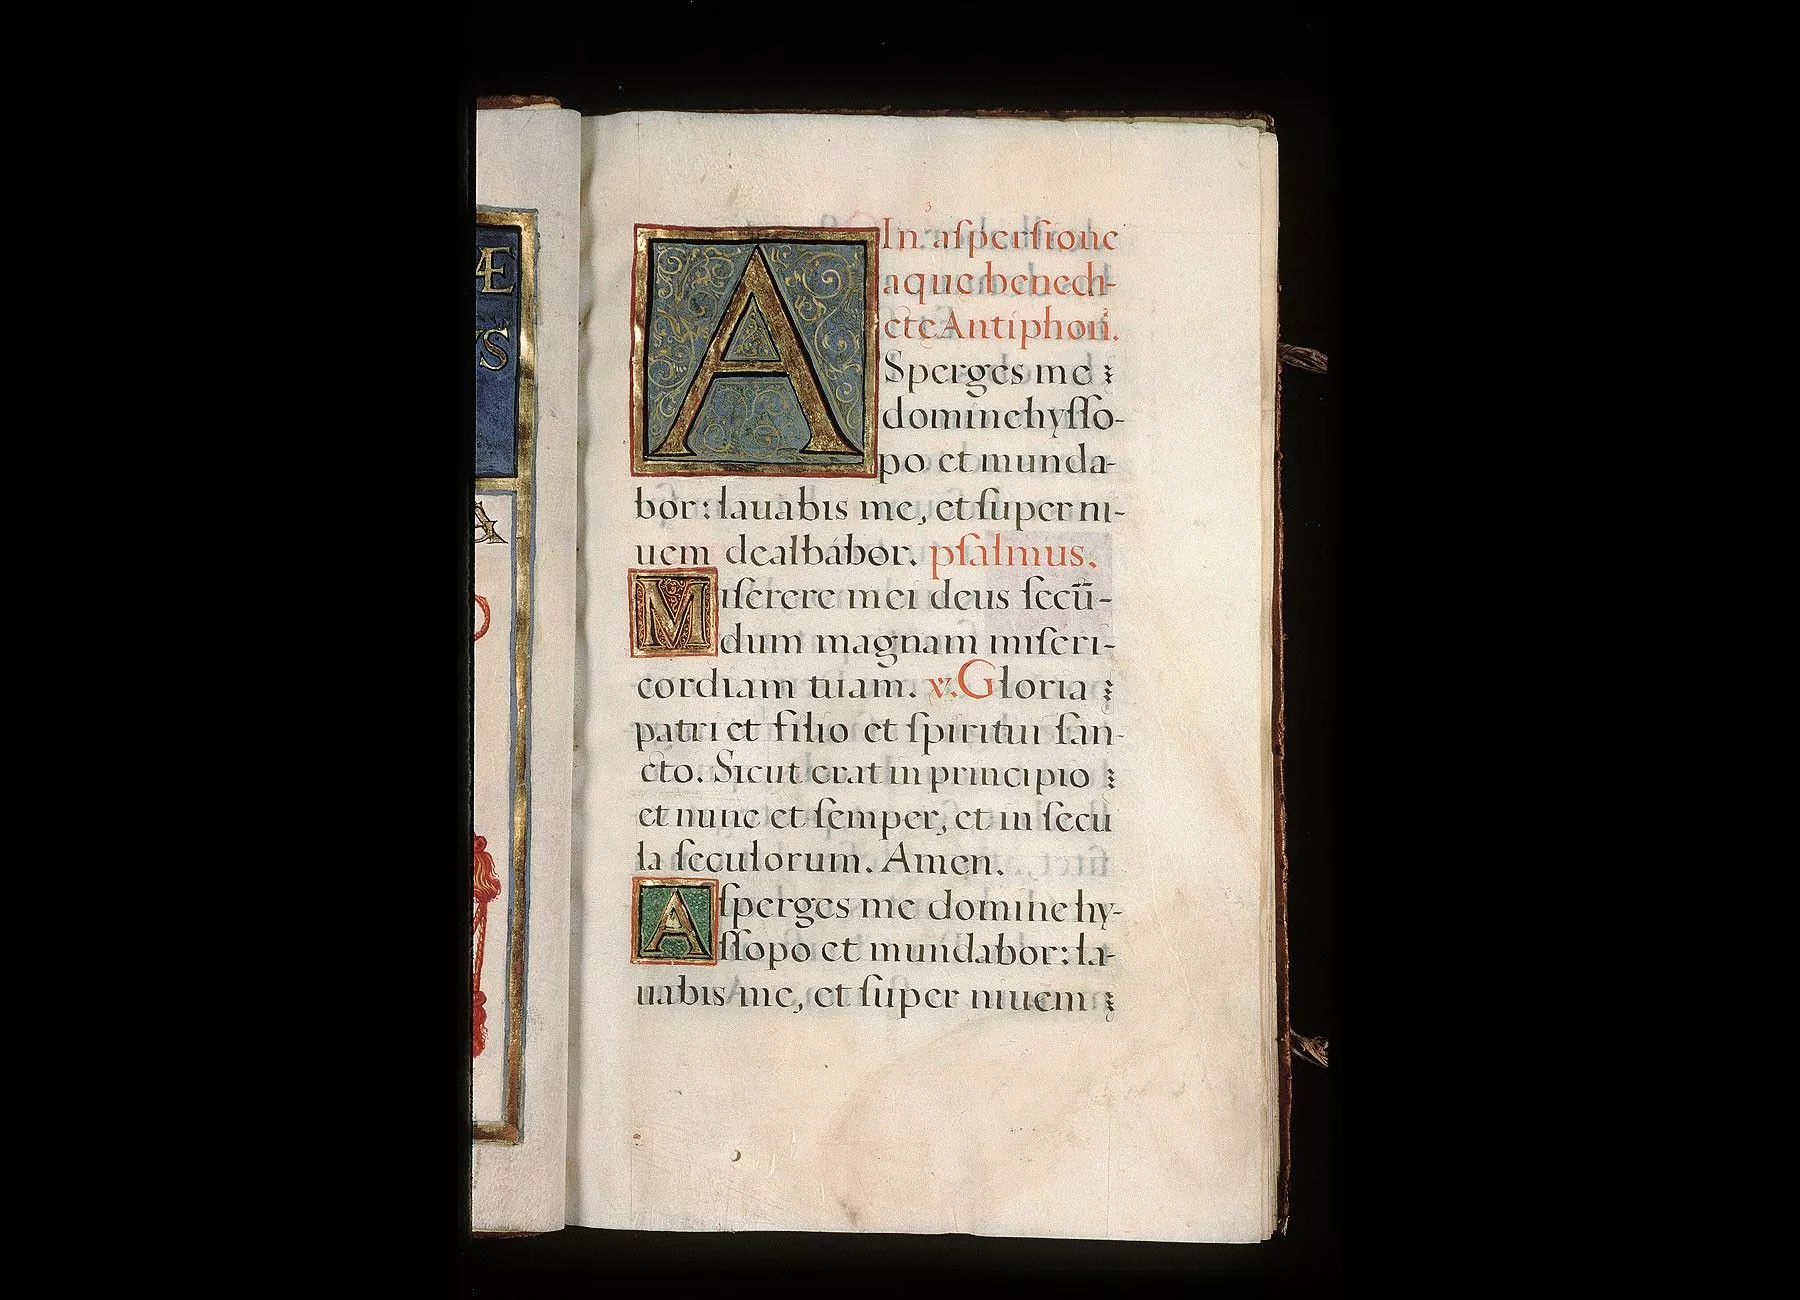 Æ
VS
A
3
In aſperſione
aque benedi-
cte Antiphoñ.
ASperges me
domine hyſſo-
po et munda-
bor: lauabis me, et ſuper ni-
uem dealbábor. pſalmus.
Miſerere mei deus ſecū-
dum magnam miſeri-
cordiam tuam. v. Gloria
patri et filio et ſpiritui ſan-
cto. Sicut erat in principio
et nunc et ſemper, et in ſecu
la ſeculorum. Amen.
Aſperges me domine hy-
ſſopo et mundabor: la-
uabis me, et ſuper niuem